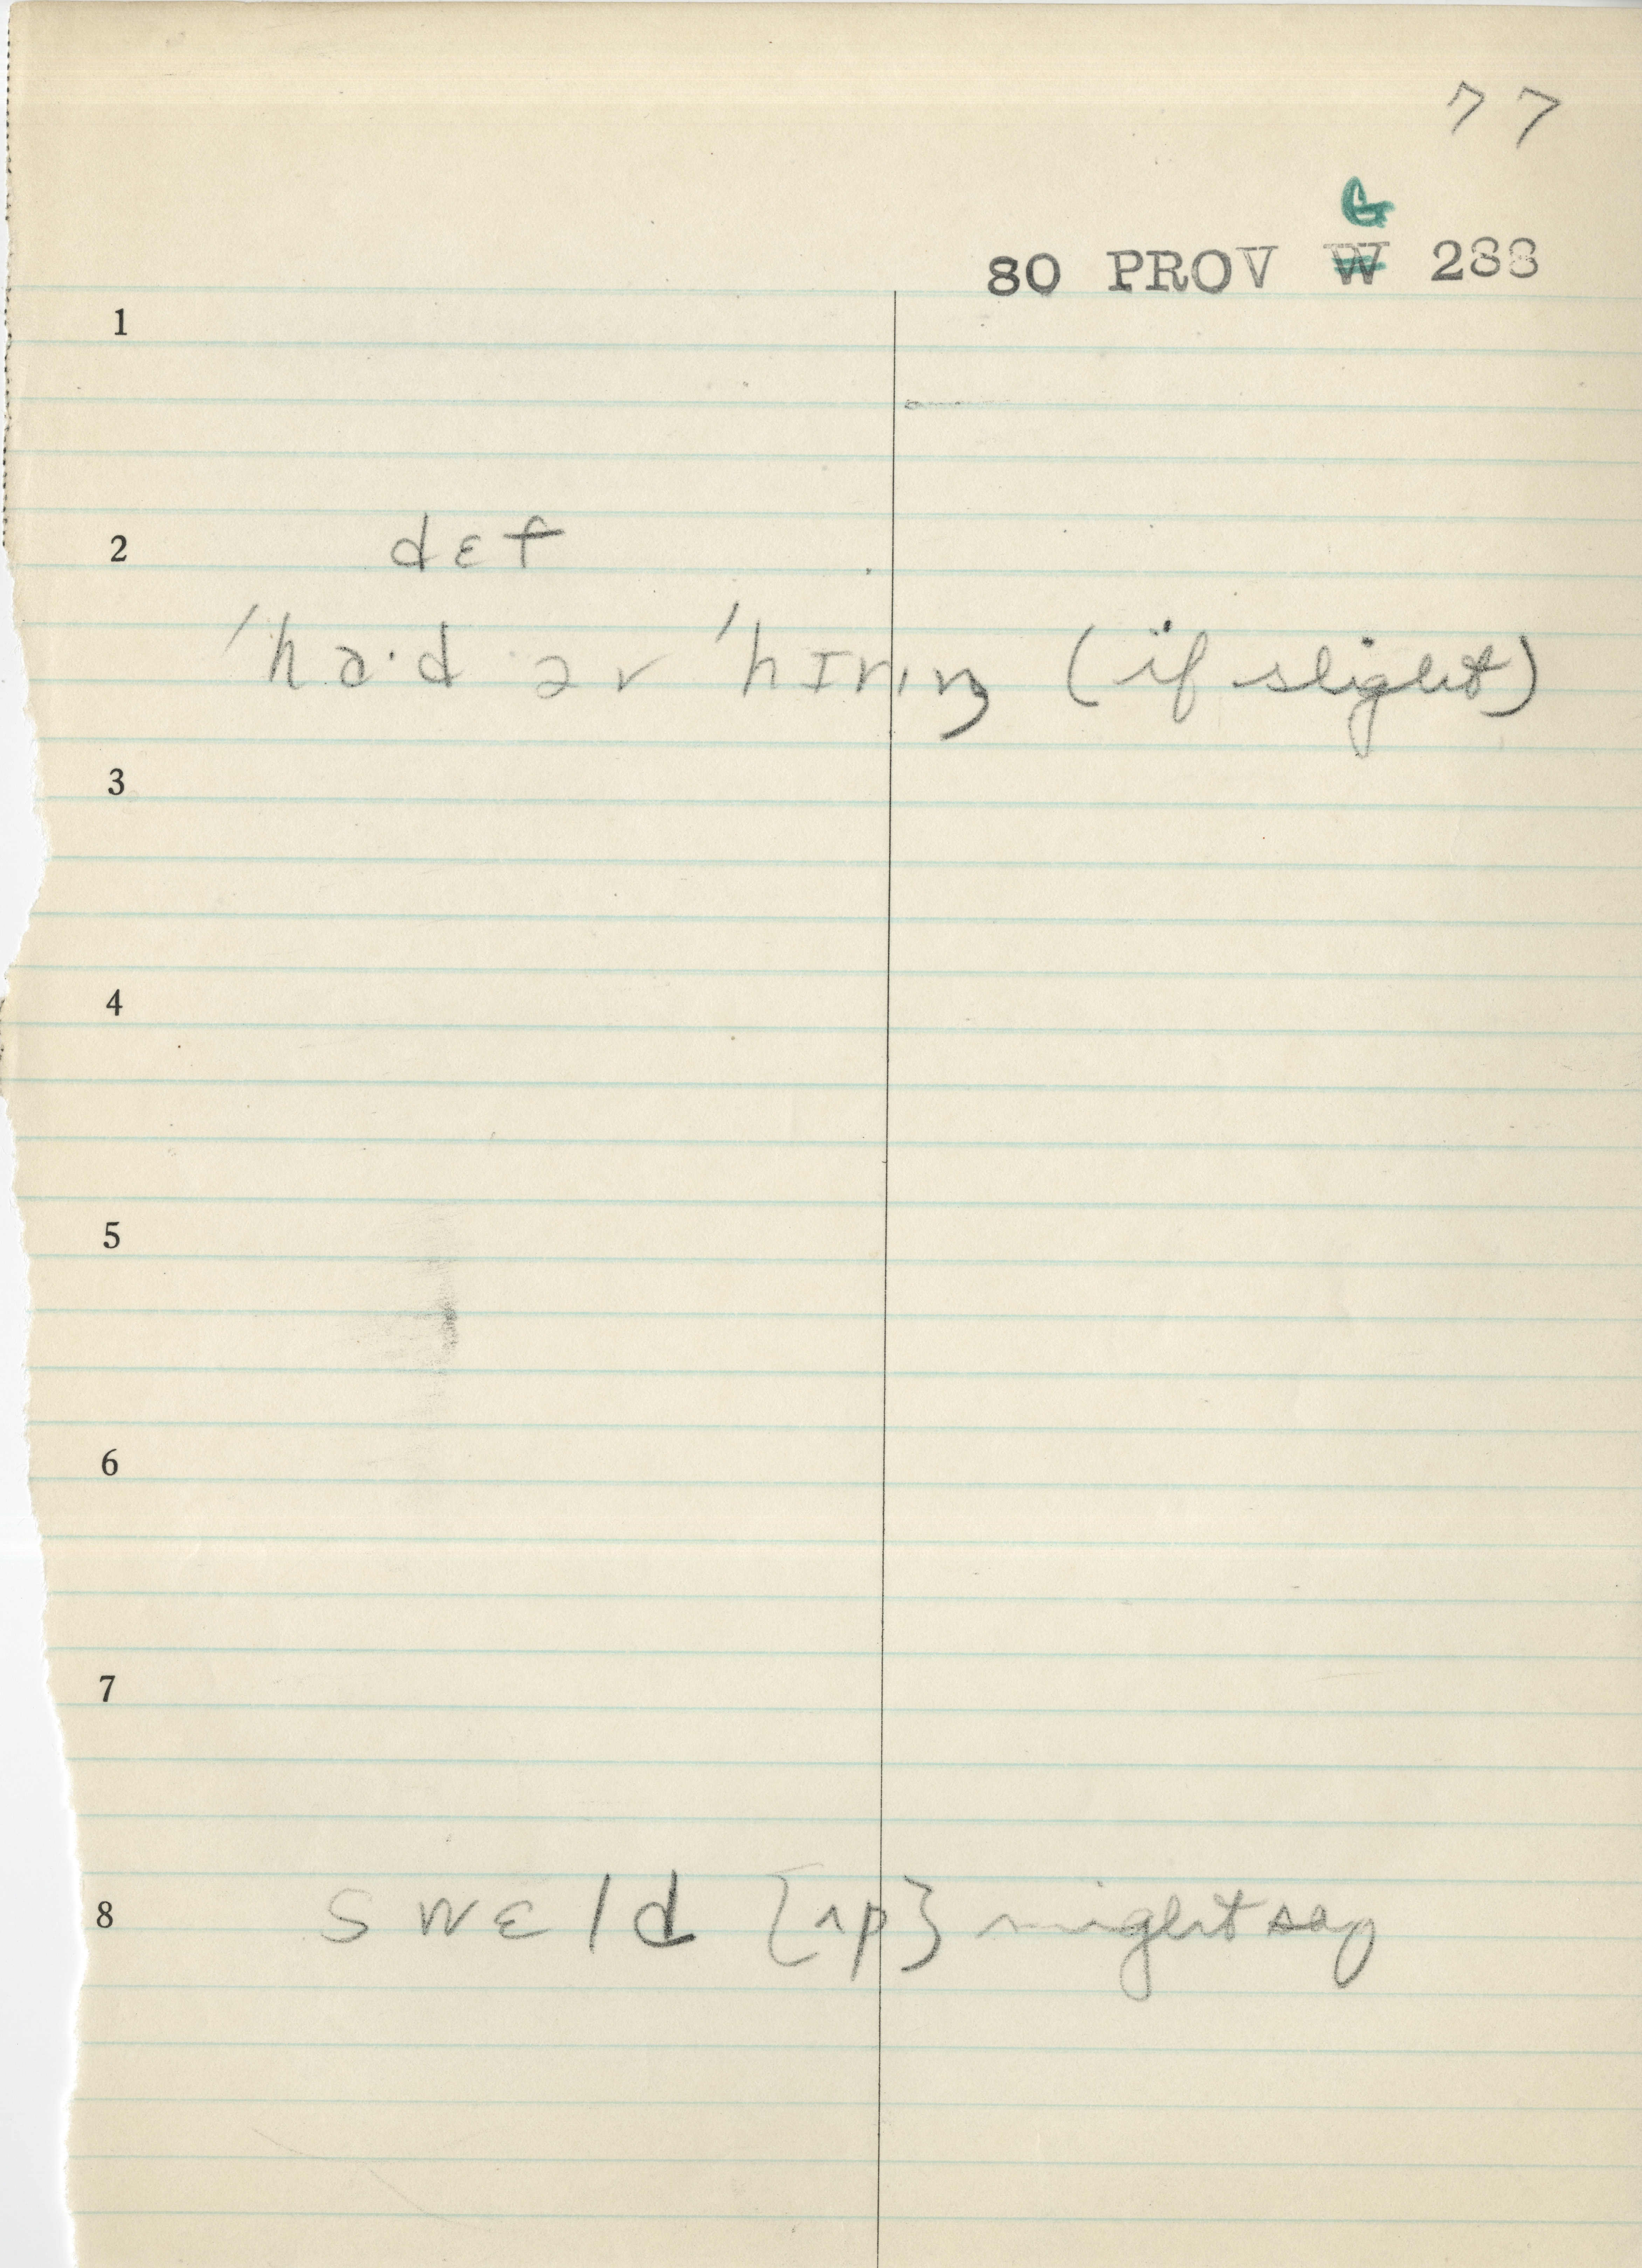 77
G
80 PROV W 288
1
2 dɛf
'ha·d əv 'hɪrɪŋ (if slight)
3
4
5
6
7
8 swɛld {ʌp} might say